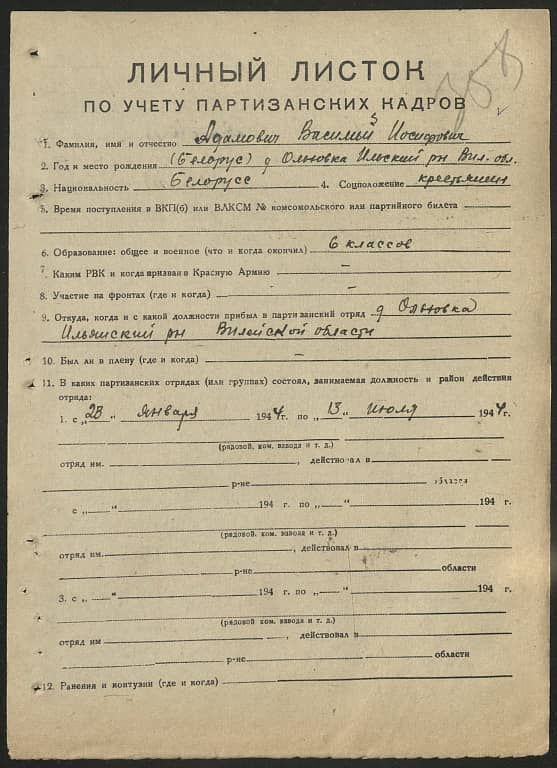 358
ЛИЧНЫЙ ЛИСТОК
ПО УЧЕТУ ПАРТИЗАНСКИХ КАДРОВ
1. Фамилия, имя и отчество Адамович Василий Иосифович
2. Год и место рождения (Белорус) д Ольковка Ильский рн Вил. обл.
3. Национальность Белорусс 4. Соцположение крестьянин
5. Время поступления в ВКП(б) или ВЛКСМ № комсомольского или партийного билета —
6. Образование: общее и военное (что и когда окончил) 6 классов
7. Каким РВК и когда призван в Красную Армию —
8. Участие на фронтах (где и когда) —
9. Откуда, когда и с какой должности прибыл в партизанский отряд д Ольковка
Ильянский рн Вилейской области
10. Был ли в плену (где и когда) —
11. В каких партизанских отрядах (или группах) состоял, занимаемая должность и район действия
отряда:
1. с „23 “ января 1944г. по „13 “ июля 1944г.
(рядовой, ком. взвода и т. д.)
отряд им. , действовал в
р-не области
с „ “ 194 г. по „ “ 194 г.
(рядовой. ком. взвода и т. д.)
отряд им. , действовал в
р-не области
3. с „ “ 194 г. по „ “ 194 г.
(рядовой ком. взвода и т. д.)
отряд им , действовал в
р-не области
12. Ранения и контузии (где и когда)